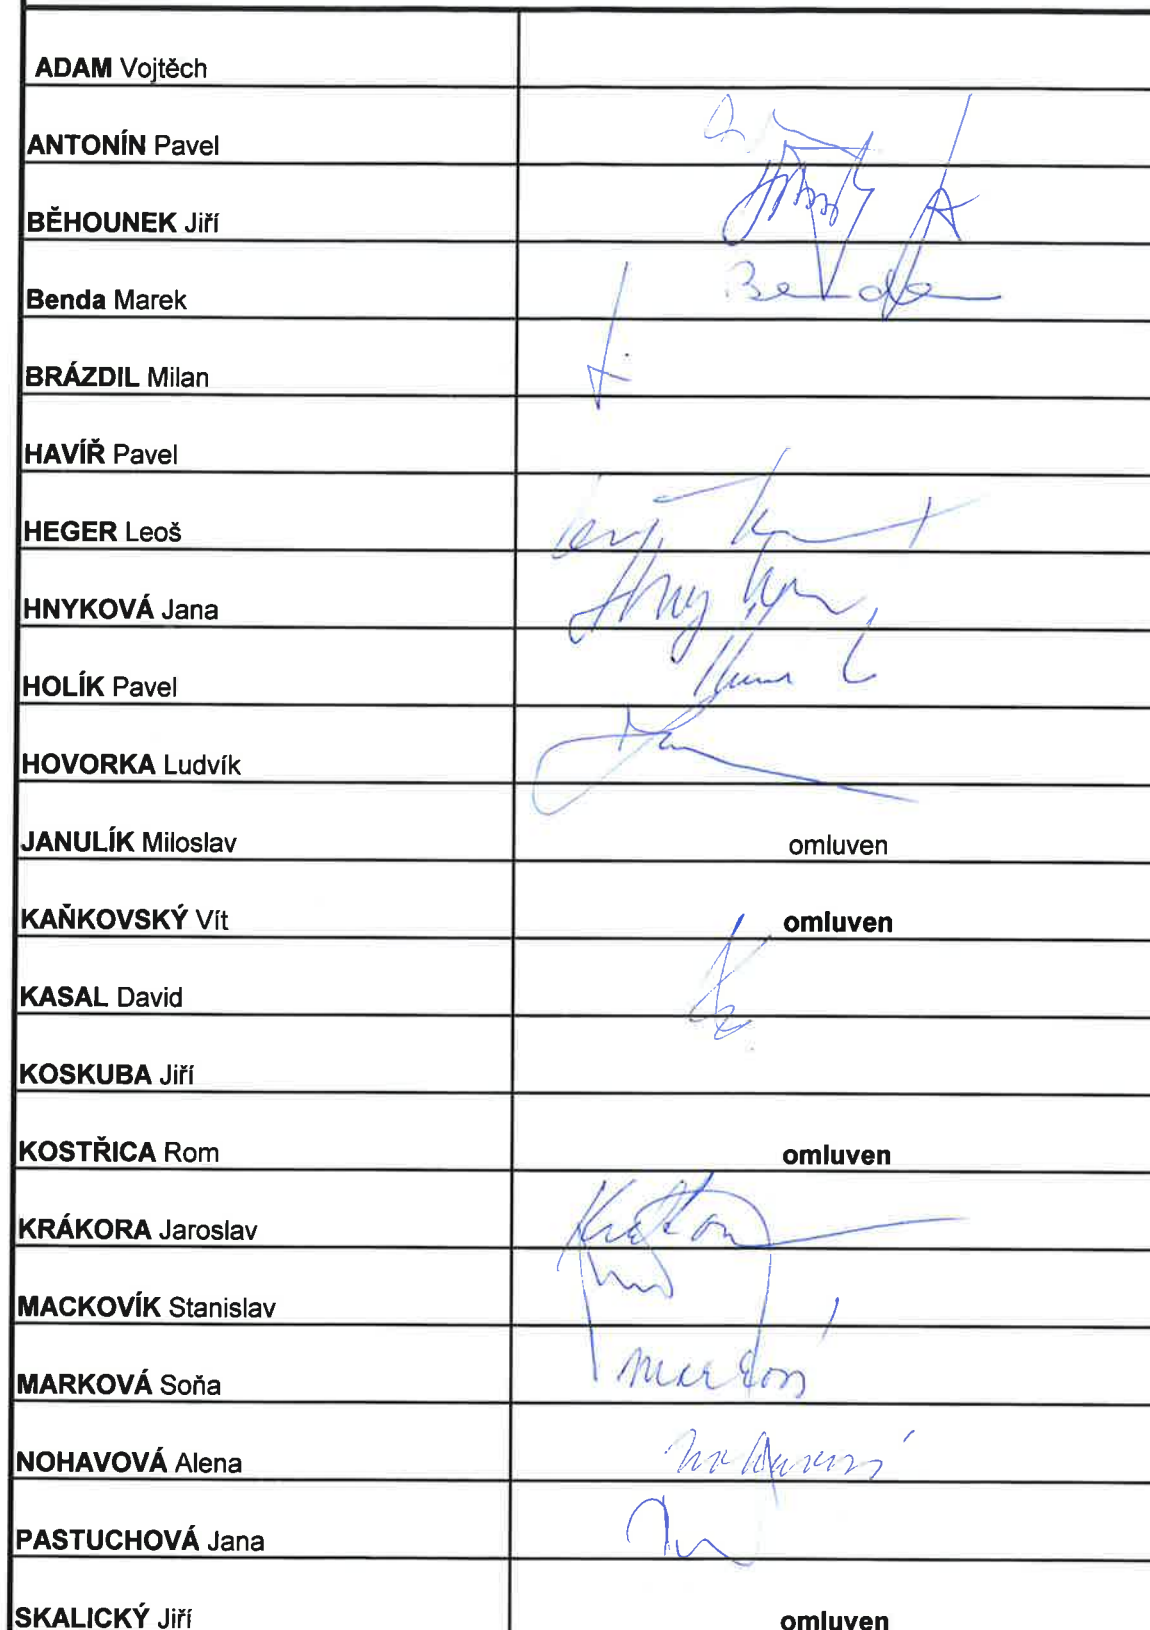 ADAM Vojtěch
ANTONÍN Pavel
BĚHOUNEK Jiří
Benda Marek Benda
BRÁZDIL Milan
HAVÍŘ Pavel
HEGER Leoš
HNYKOVÁ Jana
HOLÍK Pavel
HOVORKA Ludvík
JANULÍK Miloslav omluven
KAŇKOVSKÝ Vít omluven
KASAL David
KOSKUBA Jiří
KOSTŘICA Rom omluven
KRÁKORA Jaroslav
MACKOVÍK Stanislav
MARKOVÁ Soňa
NOHAVOVÁ Alena
PASTUCHOVÁ Jana
SKALICKÝ Jiří omluven